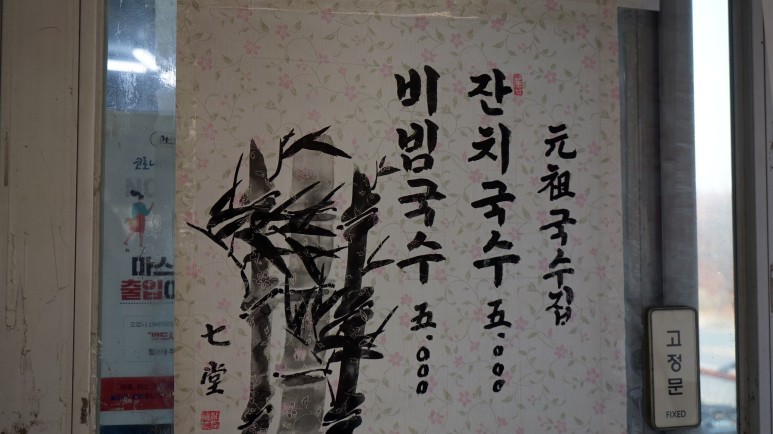 元祖국수집
잔치국수 五.000
비빔국수 五.000
七堂
고정문
FIXED
코로나
마스
출입